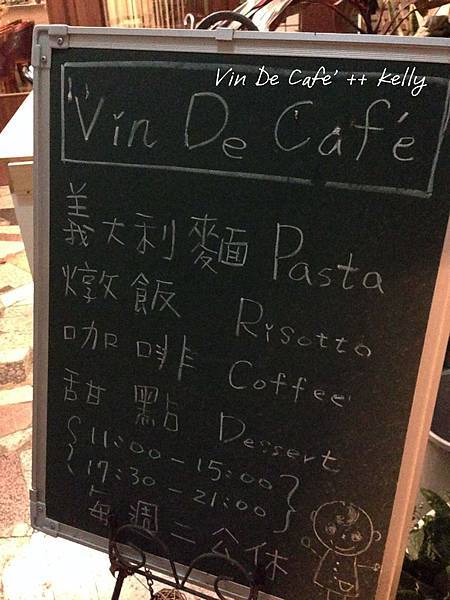 Vin De Café ++ Kelly
Vin De Café
義大利麵 Pasta
燉飯 Risotto
咖啡 Coffee
甜點 Dessert
{ 11:00-15:00
17:30-21:00 }
每週二公休